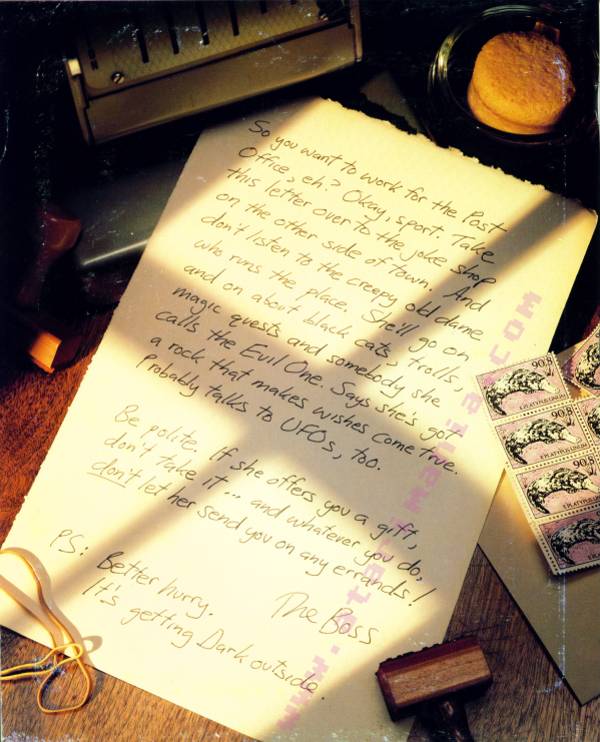 So you want to work for the Post
Office, eh? Okay, sport. Take
this letter over to the joke shop
on the other side of town. And
don't listen to the creepy old dame
who runs the place. She'll go on
and on about black cats, trolls,
magic quests and somebody she
calls the Evil One. Says she's got
a rock that makes wishes come true.
Probably talks to UFOs, too.
Be polite. If she offers you a gift,
don't take it... and whatever you do,
don't let her send you on any errands!
The Boss
PS: Better hurry.
It's getting Dark outside.
90
90
90
90
www.atarimania.com